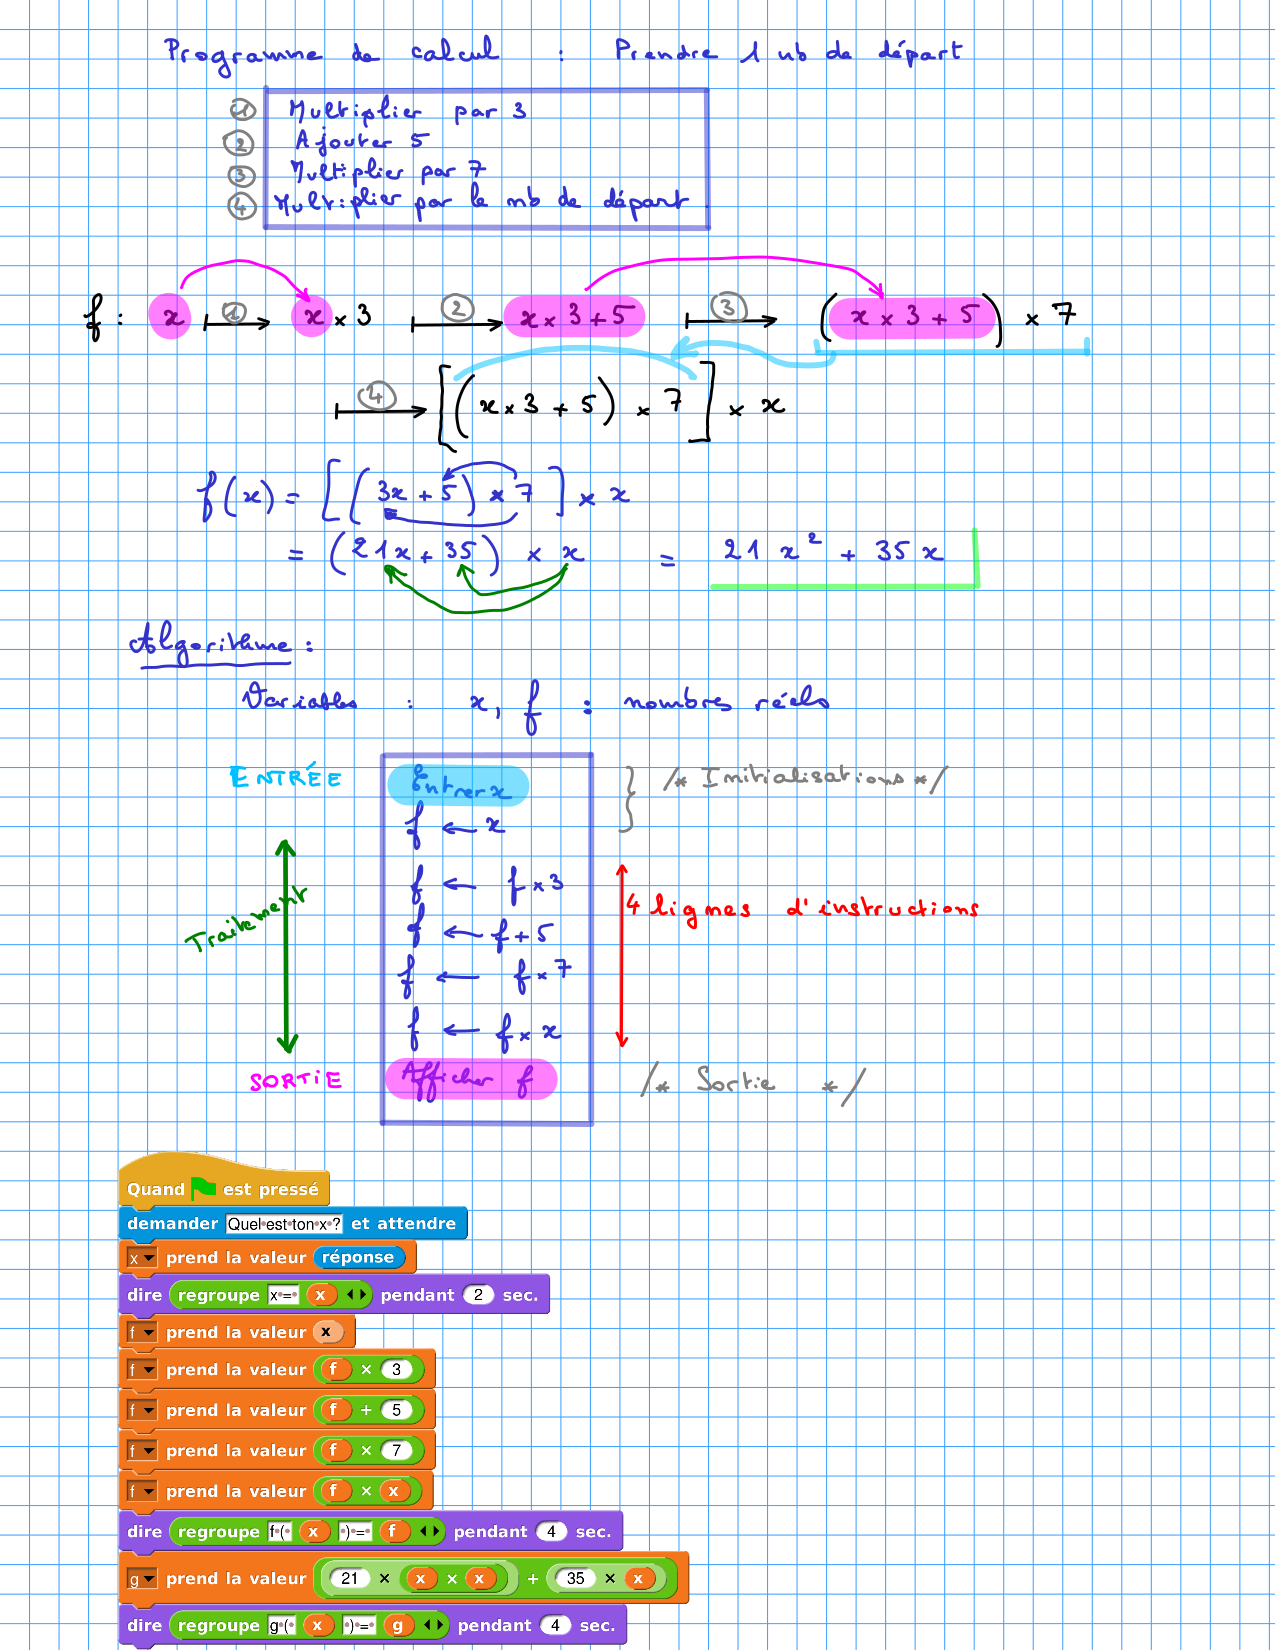 Programme de calcul : Prendre 1 nb de départ
① Multiplier par 3
② Ajouter 5
③ Multiplier par 7
④ Multiplier par le nb de départ
f : x ① x × 3 ② x × 3 + 5 ③ (x × 3 + 5) × 7
④ [(x × 3 + 5) × 7] × x
f(x) = [(3x + 5) × 7] × x
= (21x + 35) × x = 21 x² + 35 x
Algorithme :
Variables : x, f : nombres réels
ENTRÉE Entrer x /* Initialisations */
f ← x
f ← f × 3
Traitement 4 lignes d'instructions
f ← f + 5
f ← f × 7
f ← f × x
SORTIE Afficher f /* Sortie */
Quand est pressé
demander Quel est ton x ? et attendre
x prend la valeur réponse
dire regroupe x = x pendant 2 sec.
f prend la valeur x
f prend la valeur f × 3
f prend la valeur f + 5
f prend la valeur f × 7
f prend la valeur f × x
dire regroupe f ( x ) = f pendant 4 sec.
g prend la valeur 21 × x × x + 35 × x
dire regroupe g ( x ) = g pendant 4 sec.